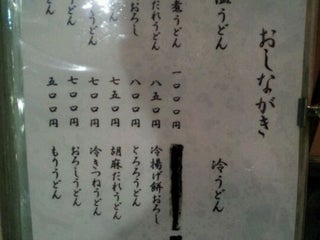 おしながき
うどん
煮うどん 一〇〇〇円
だれうどん 八五〇円
おろし 八〇〇円
うどん 七五〇円
うどん 七〇〇円
うどん 七〇〇円
どん 五〇〇円
冷うどん
冷揚げ餅おろし
とろろうどん
胡麻だれうどん
冷きつねうどん
おろしうどん
もりうどん